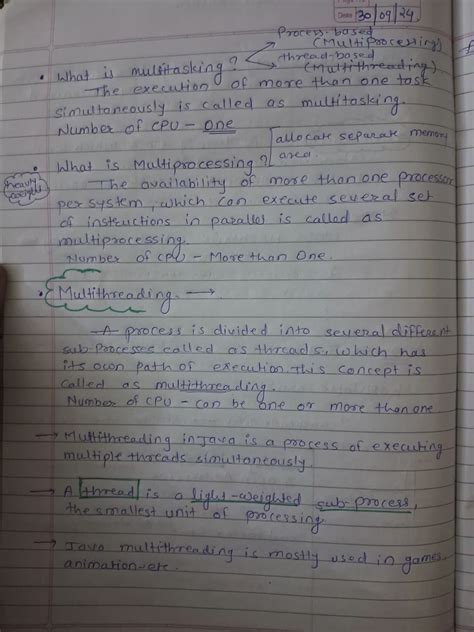 Date 30/09/24
Process-based
(Multiprocessing)
• What is multitasking?
thread-based
(Multithreading)
The execution of more than one task
simultaneously is called as multitasking.
Number of CPU - One
allocate separate memory
area.
• What is Multiprocessing?
heavy
The availability of more than one processor
per system, which can execute several set
of instructions in parallel is called as
multiprocessing.
Number of CPU - More than One.
• Multithreading. →
- A process is divided into several different
sub-processes called as threads, which has
its own path of execution. This concept is
called as multithreading.
Number of CPU - can be one or more than one
→ Multithreading in Java is a process of executing
multiple threads simultaneously.
→ A thread is a light-weighted sub-process,
the smallest unit of processing
→ Java multithreading is mostly used in games,
animation etc.